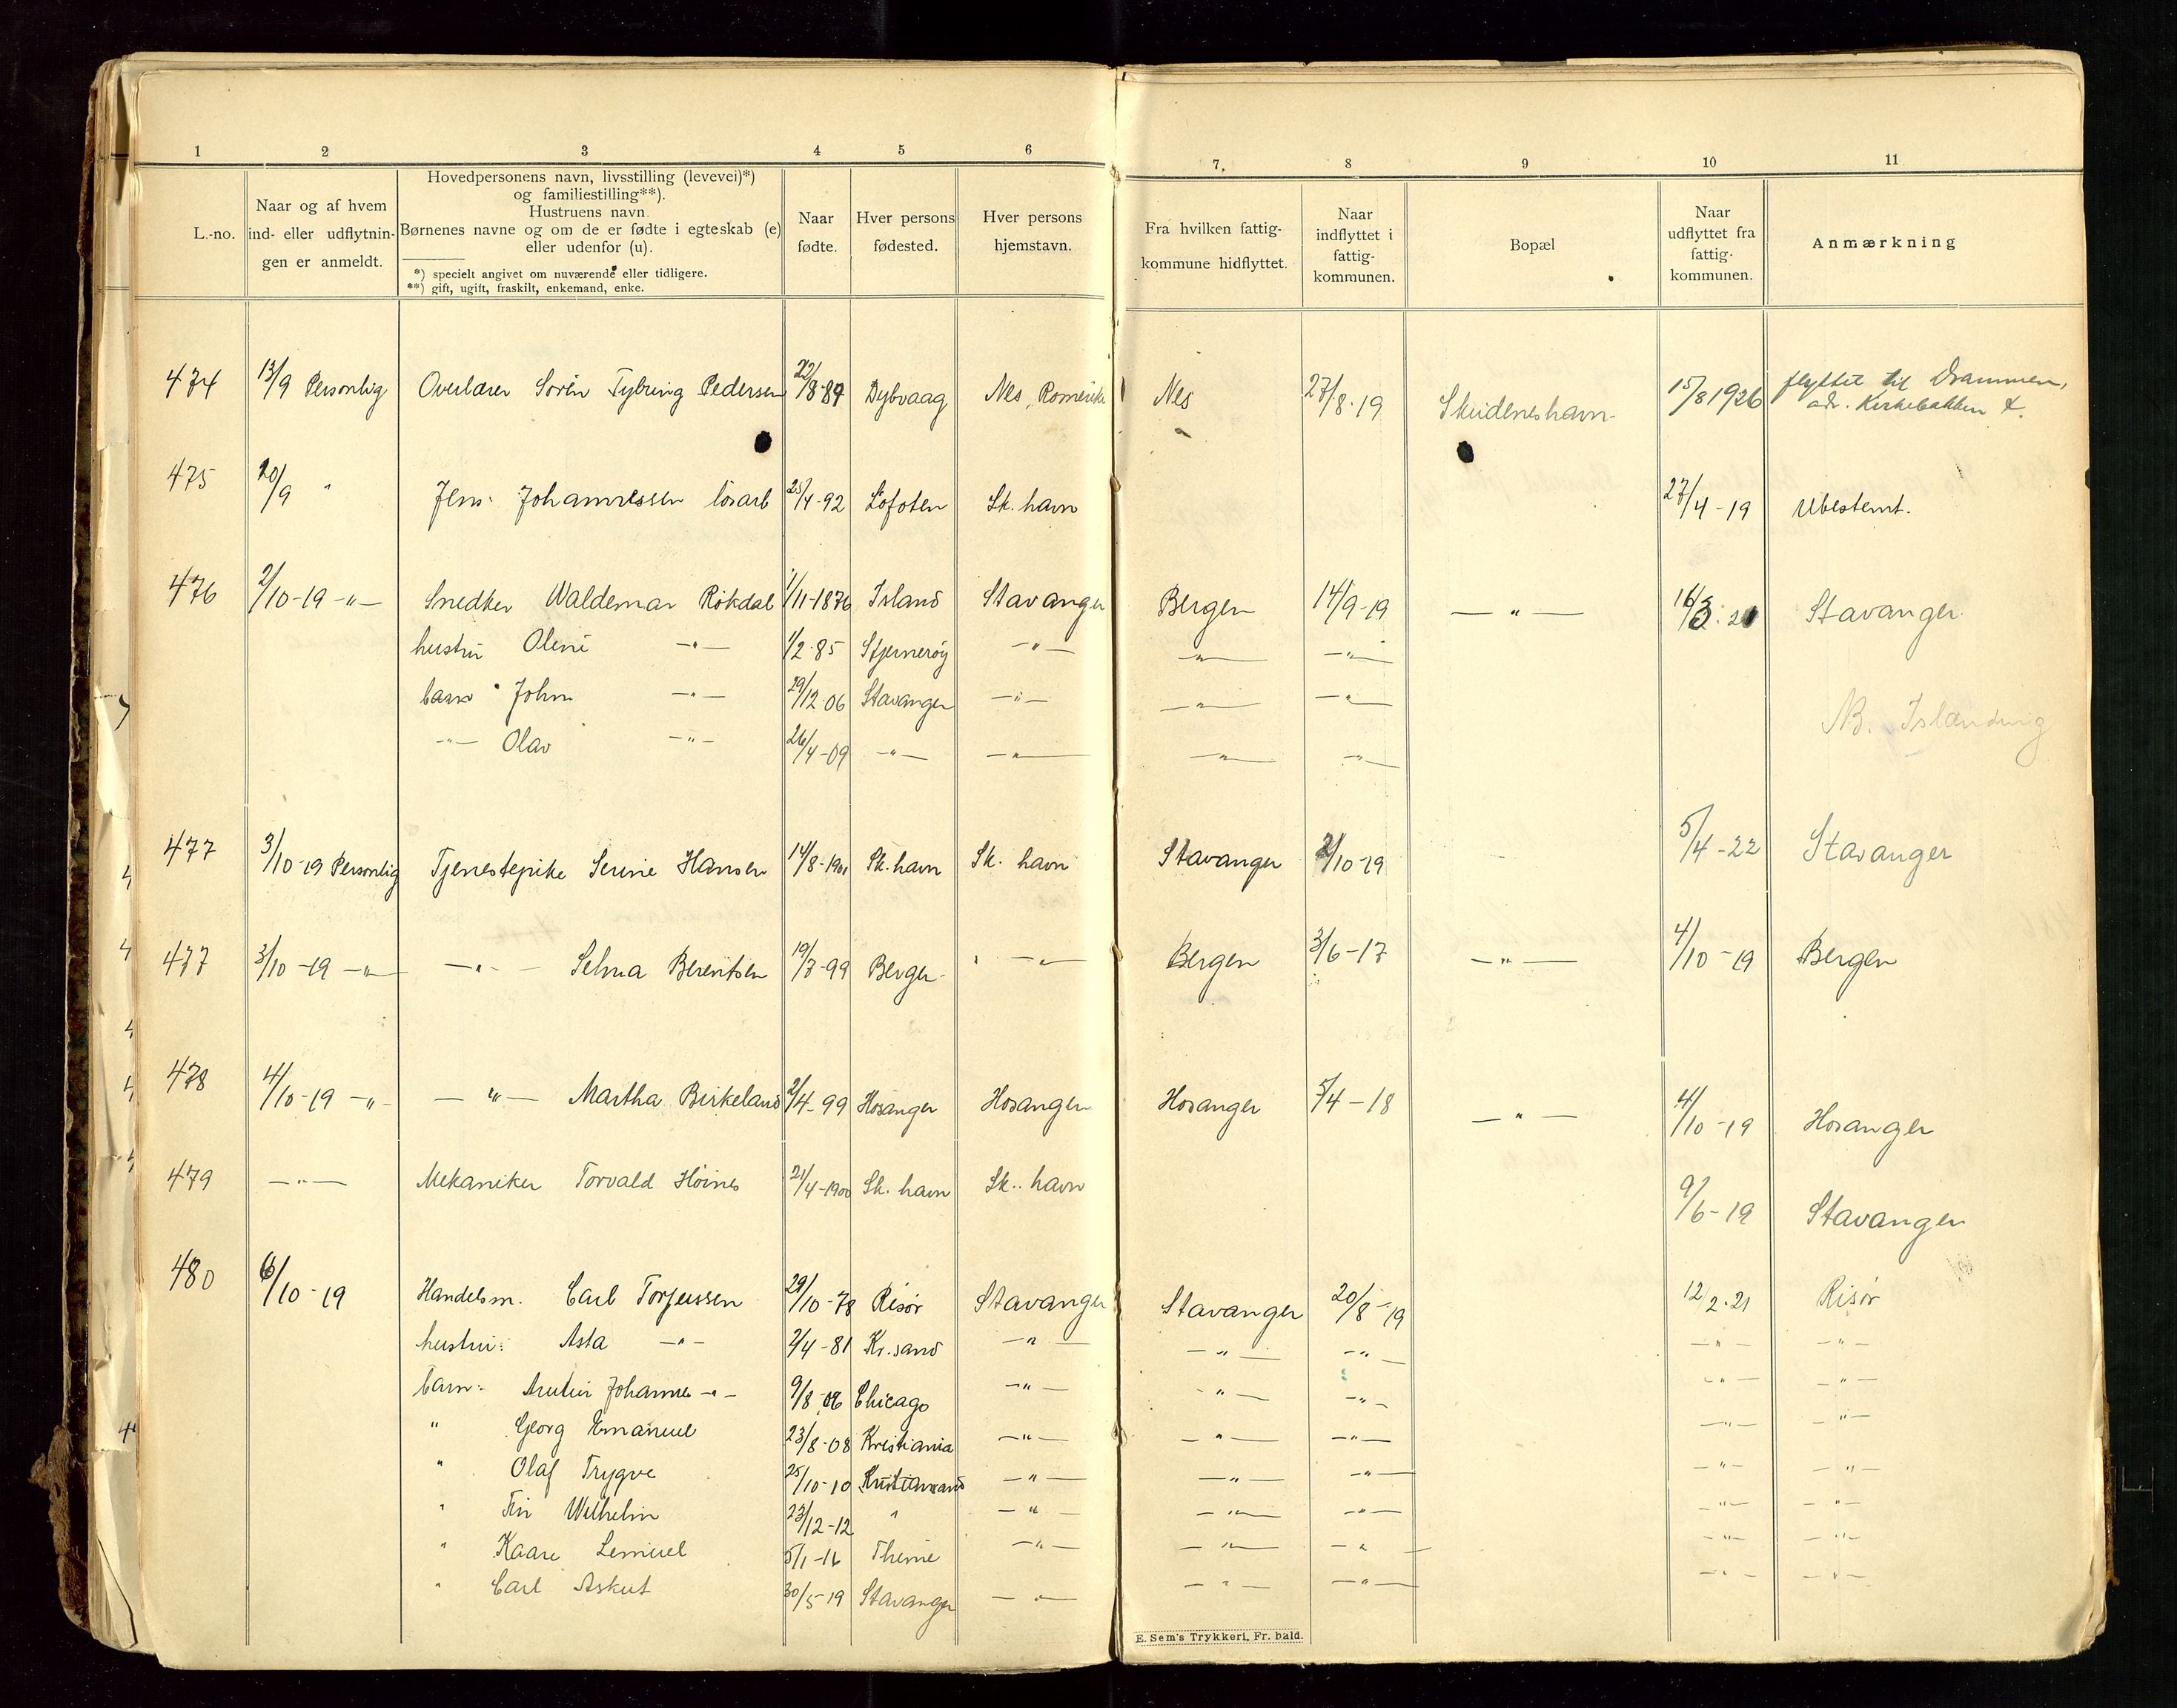 1 2 3 4 5 6 7. 8 9 10 11
L.-no.
Naar og af hvem
ind- eller udflytnin-
gen er anmeldt.
Hovedpersonens navn, livsstilling (levevei)*)
og familiestilling**).
Hustruens navn.
Børnenes navne og om de er fødte i egteskab (e)
eller udenfor (u).
*) specielt angivet om nuværende eller tidligere.
**) gift, ugift, fraskilt, enkemand, enke.
Naar
fødte.
Hver persons
fødested.
Hver persons
hjemstavn.
Fra hvilken fattig-
kommune hidflyttet.
Naar
indflyttet i
fattig-
kommunen.
Bopæl
Naar
udflyttet fra
fattig-
kommunen.
Anmærkning
474 13/9 Personlig Overlærer Sorén Tybring Pedersen 22/8-89 Dybvaag Nes, Romerike Nes 27/8-19 Skudeneshavn 15/8 1926 flyttet til Drammen,
adr. Kirkebakken
475 20/9 " Jens Johannessen losarb 25/4-92 Lofoten Sk. havn 27/4-19 Ubestemt.
476 2/10-19 -"- Snedker Waldemar Rokdal 1/11-1876 Island Stavanger Bergen 14/9-19 -"- 16/3-21 Stavanger
hustru Oline -"- 1/2-85 Stjernerøy -"- -"- -"-
barn John -"- 29/12-06 Stavanger -"- -"- -"-
NB. Islænding
-"- Olav -"- 26/4-09 -"- -"- -"- -"-
477 3/10-19 Personlig Tjenestepike Serine Hansen 14/8-1901 Sk. havn Sk. havn Stavanger 2/10-19 5/4-22 Stavanger
477 3/10-19 -"- -"- Selma Berentsen 19/7-99 Bergen -"- Bergen 3/6-17 -"- 4/10-19 Bergen
478 4/10-19 -"- -"- Martha Birkeland 2/4-99 Hosanger Hosanger Hosanger 5/4-18 -"- 4/10-19 Hosanger
479 -"- Mekaniker Torvald Høines 21/4-1900 Sk. havn Sk. havn 9/6-19 Stavanger
480 6/10-19 Handelsm. Carl Torjussen 29/10-78 Risør Stavanger Stavanger 20/8-19 12/2-21 Risør
hustru: Asta -"- 2/4-81 Kr.sand -"- -"- -"- -"- -"-
barn: Johanne -"- 9/8-06 Chicago -"- -"- -"- -"- -"-
" Georg Emanuel 23/8-08 Kristiania -"- -"- -"- -"- -"-
" Olaf Trygve 25/10-10 Kristiansand -"- -"- -"- -"- -"-
" Fin Wilhelm 23/12-12 " -"- -"- -"- -"- -"-
" Kaare Lemuel 5/1-16 -"- -"- -"- -"- -"-
" Carl Askut 30/5-19 Stavanger -"- -"- -"- -"- -"-
E. Sem's Trykkeri, Fr. hald.